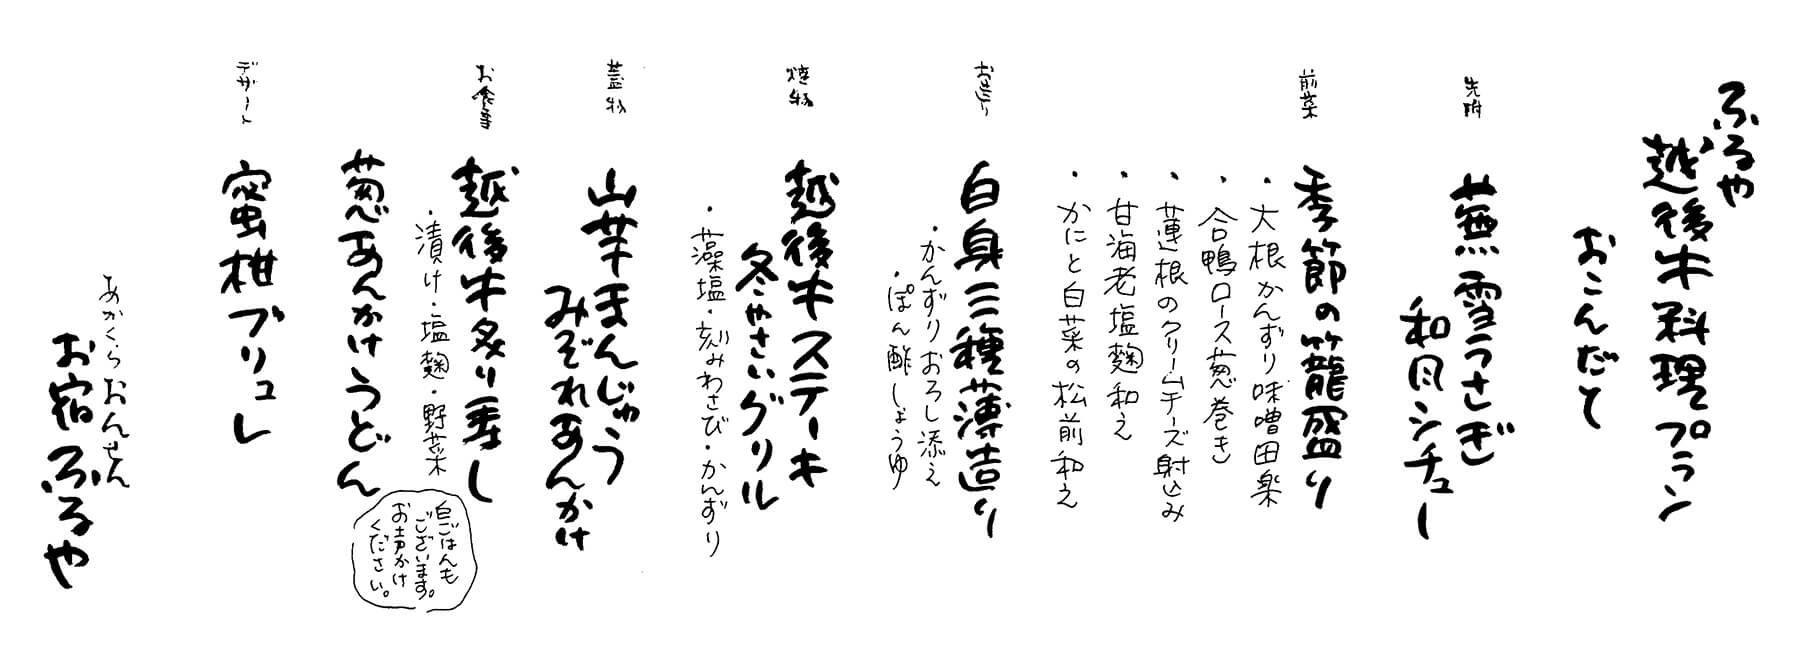 ふるや
越後牛料理プラン
おこんだて
先附
蕪雪うさぎ
和風シチュー
前菜
季節の籠盛り
・大根かんずり味噌田楽
・合鴨ロース葱巻き
・蓮根のクリームチーズ射込み
・甘海老塩麹和え
・かにと白菜の松前和え
お造り
白身三種薄造り
・かんずりおろし添え
・ぽん酢しょうゆ
焼物
越後牛ステーキ
冬やさいグリル
・藻塩・刻みわさび・かんずり
蓋物
山芋まんじゅう
みぞれあんかけ
お食事
越後牛炙り寿し
・漬け・塩麹・野菜
葱あんかけうどん
白ごはんも
ございます。
お声かけ
ください。
デザート
蜜柑ブリュレ
あかくらおんせん
お宿ふるや